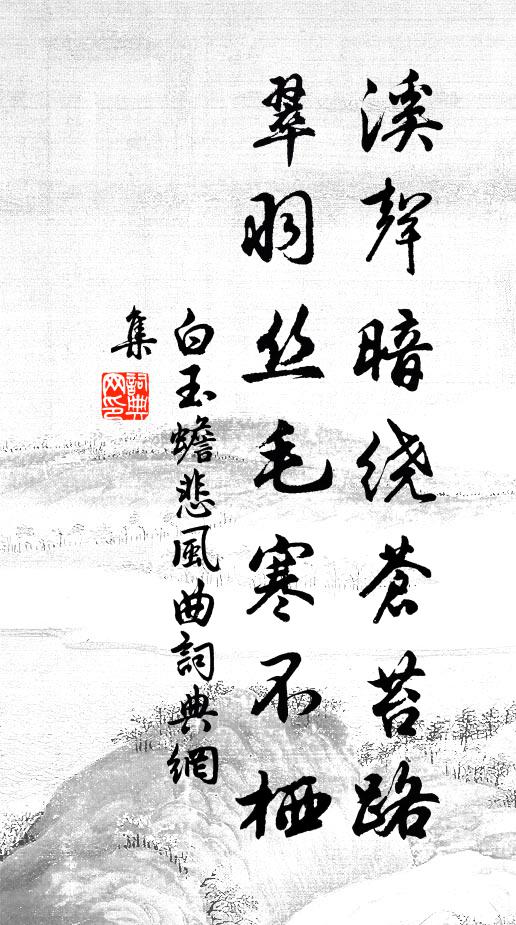 溪聲暗绕蒼苔路
翠羽丝毛寒不栖
白玉蟾悲風曲詞典網
集
詞典
网印